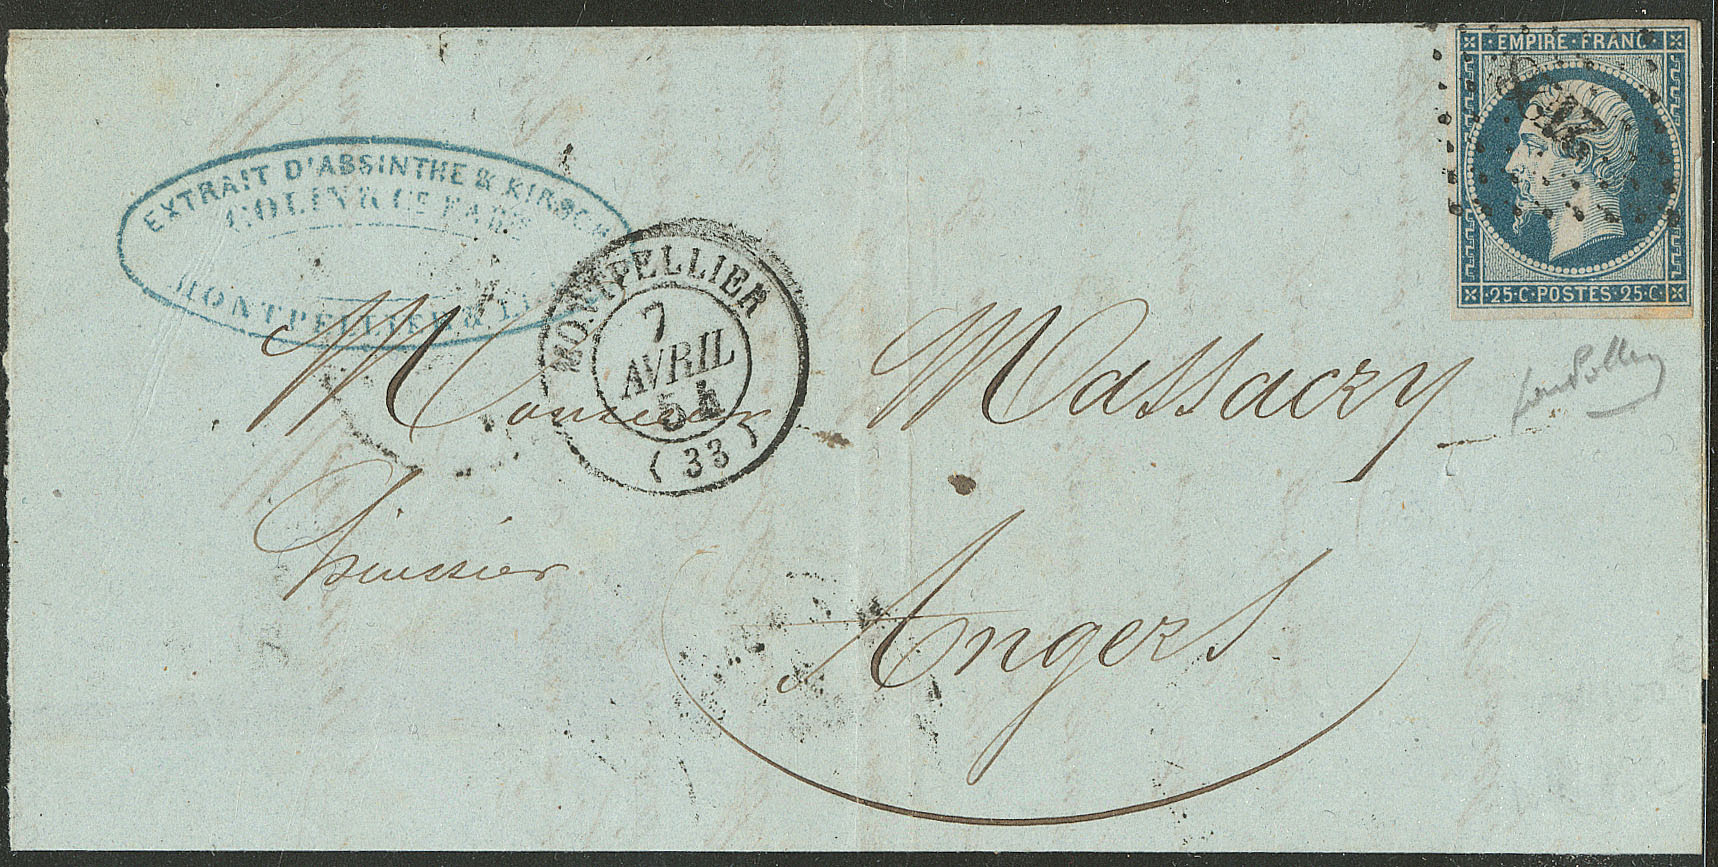 EMPIRE · FRANC
25·C·POSTES·25·C
EXTRAIT D'ABSINTHE & KIRSCH
COLIN & Cie FABts
MONTPELLIER &
MONTPELLIER
7
AVRIL
54
(33)
Monsieur Massacry
huissier
à Angers